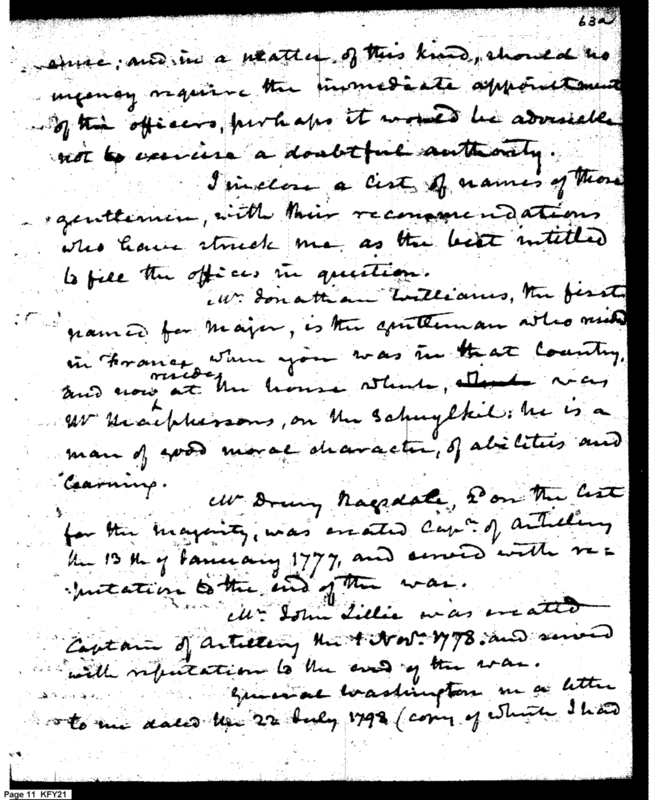 63a
and in a matter of this kind, should no
urgency require the immediate appointment
of the officers, perhaps it would be adviseable
not to exercise a doubtful authority.
I inclose a list of names of those
gentlemen, with their recommendations
who have struck me as the best intitled
to fill the offices in question.
Mr. Jonathan Williams, the first
named for Major, is the gentleman who resided
in France when you was in that Country,
resides
and now at the house which, was
Mr Macphersons, on the Schuylkil: he is a
man of good moral character, of abilities and
learning.
Mr Drury Ragsdale, 2d on the list
for the majority, was created Capn. of Artillery
the 13th of January 1777, and served with re=
putation to the end of the war.
Mr. John Lillie was created
Captain of Artillery the 1 Novr. 1778. and served
with reputation to the end of the war.
General Washington in a letter
to me dated the 22 July 1798 (copy of which I had
Page 11 KFY21